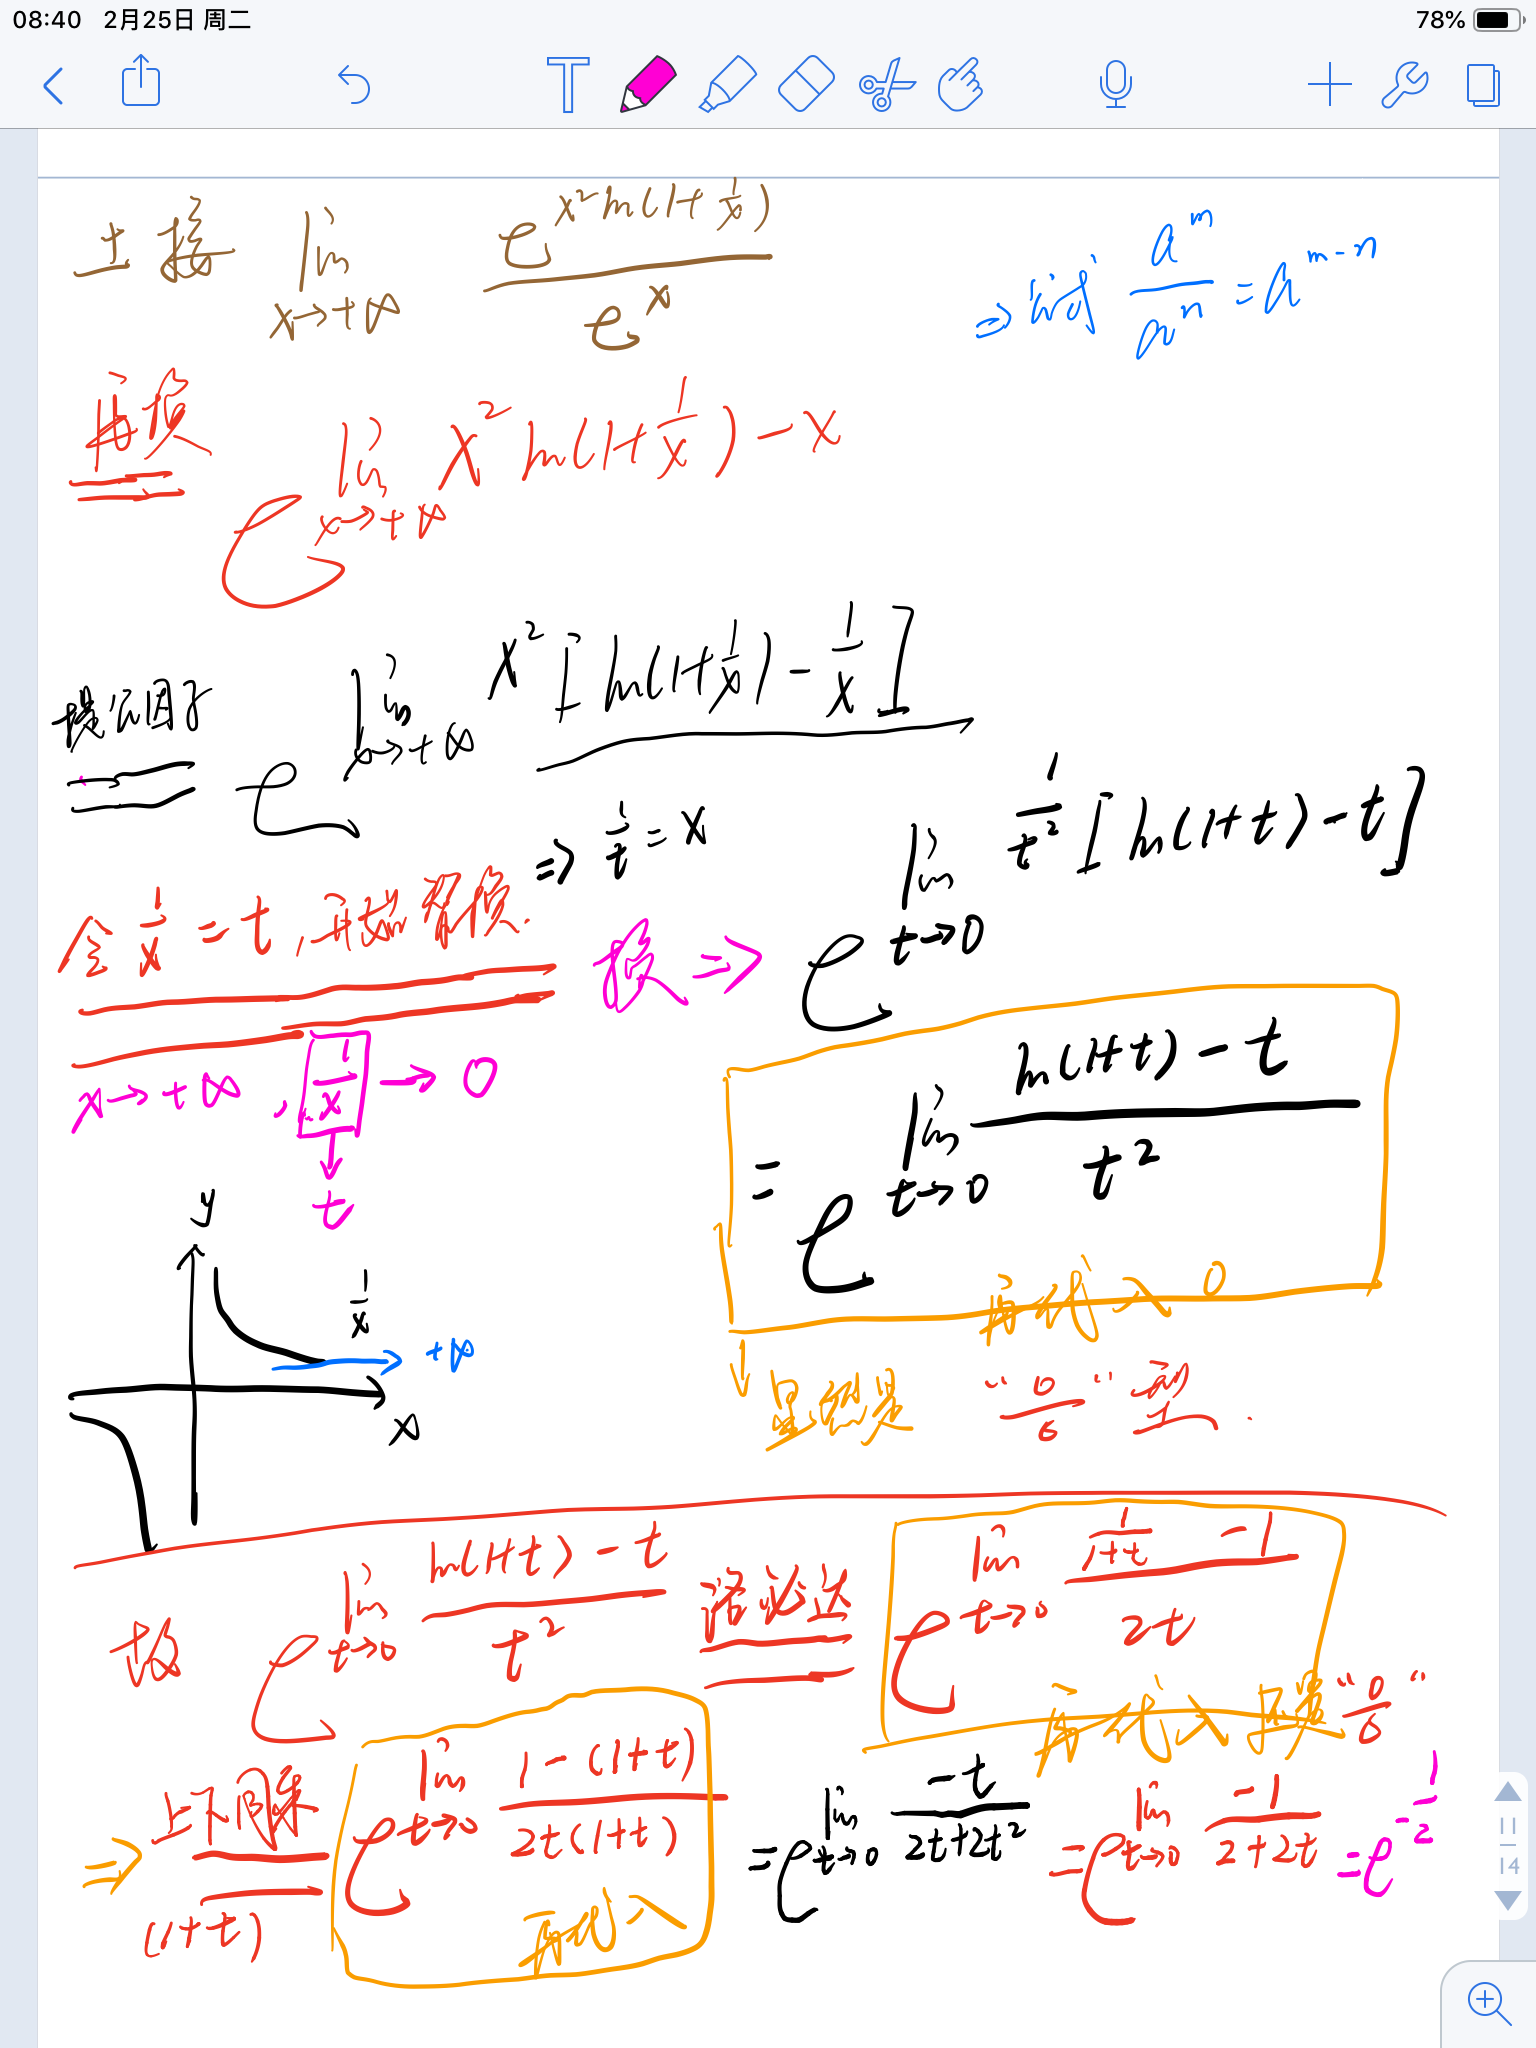 08:40 2月25日 周二 78%
上接 lim x→+∞ e^(x² ln(1+1/x)) / e^x ⇒ a^m / a^n = a^(m-n)
再换 e^(lim x→+∞ x² ln(1+1/x) - x)
提公因子 e^(lim x→+∞ x² [ln(1+1/x) - 1/x])
⇒ 1/t = x
令 1/x = t, 开始替换.
换 ⇒ e^(lim t→0 1/t² [ln(1+t) - t])
x→+∞, 1/x → 0
↓
t
= e^(lim t→0 (ln(1+t) - t) / t²)
再代入 0
↓ 显然是 “0/0” 型.
y
1/x
+∞
x
故 e^(lim t→0 (ln(1+t) - t) / t²) 洛必达 e^(lim t→0 (1/(1+t) - 1) / 2t)
再代入 只是 “0/0”
⇒ 上下同乘 (1+t) e^(lim t→0 (1-(1+t)) / 2t(1+t)) = e^(lim t→0 -t / (2t+2t²)) = e^(lim t→0 -1 / (2+2t)) = e^(-1/2)
再代入
11
14